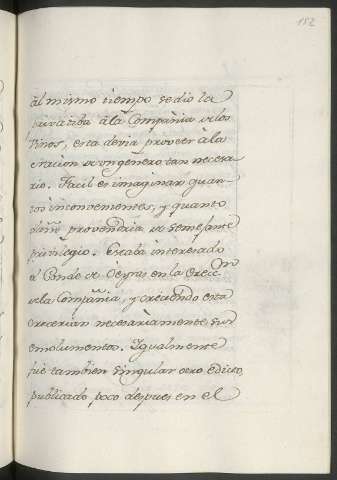 152
al mismo tiempo se dio la
privatiba à la Compañia de los
Vinos, esta devia proveer à la
Nacion de un genero tan necesa-
rio. Facil es imaginar quan-
tos inconvenientes, y quanto
daño provendria de semejante
privilegio. Estaba interesado
el Conde de Oeyras en la Erecc.on
de la Compañia, y creciendo esta
crecerian necesariamente sus
emolumentos. Igualmente
fue tambien singular otro edicto,
publicado poco despues en el